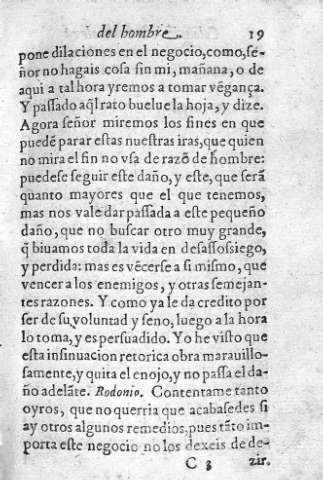 del hombre. 19
pone dilaciones en el negocio, como, ſe-
ñor no hagais coſa ſin mi, mañana, o de
aqui a tal hora yremos a tomar vẽgança.
Y paſſado aq̃l rato buelue la hoja, y dize.
Agora ſeñor miremos los fines en que
puedẽ parar eſtas nueſtras iras, que quien
no mira el fin no vſa de razõ de hombre:
puedeſe ſeguir eſte daño, y eſte, que ſerã
quanto mayores que el que tenemos,
mas nos vale dar paſſada a eſte pequeño
daño, que no buſcar otro muy grande,
q̃ biuamos toda la vida en deſaſſoſsiego,
y perdida: mas es vẽcerſe a ſi miſmo, que
vencer a los enemigos, y otras ſemejan-
tes razones. Y como ya le da credito por
ſer de ſu voluntad y ſeno, luego a la hora
lo toma, y es perſuadido. Yo he viſto que
eſta inſinuacion retorica obra marauillo-
ſamente, y quita el enojo, y no paſſa el da-
ño adelãte. Rodonio. Contentame tanto
oyros, que no querria que acabaſedes ſi
ay otros algunos remedios, pues tãto im-
porta eſte negocio no los dexeis de de-
C 3 zir.